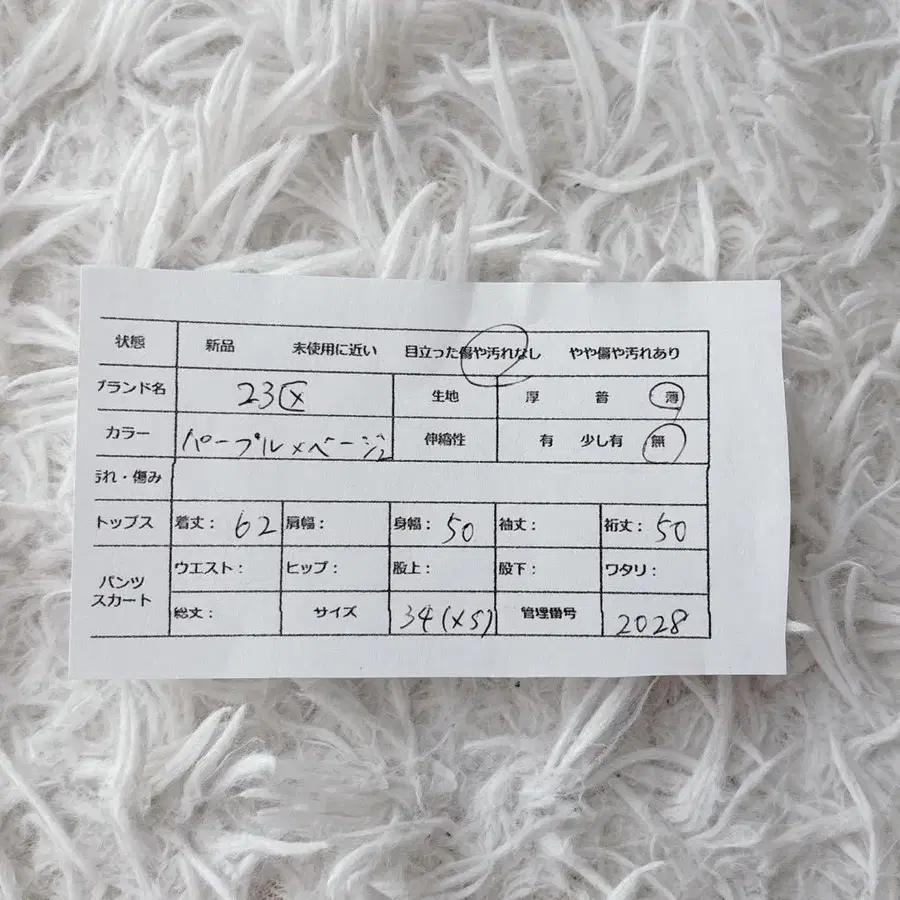 状態 新品 未使用に近い 目立った傷や汚れなし やや傷や汚れあり
ブランド名 23区 生地 厚 普 薄
カラー パープル×ベージュ 伸縮性 有 少し有 無
汚れ・傷み
トップス 着丈: 62 肩幅: 身幅: 50 袖丈: 裄丈: 50
パンツ スカート ウエスト: ヒップ: 股上: 股下: ワタリ:
総丈: サイズ 34(XS) 管理番号 2028